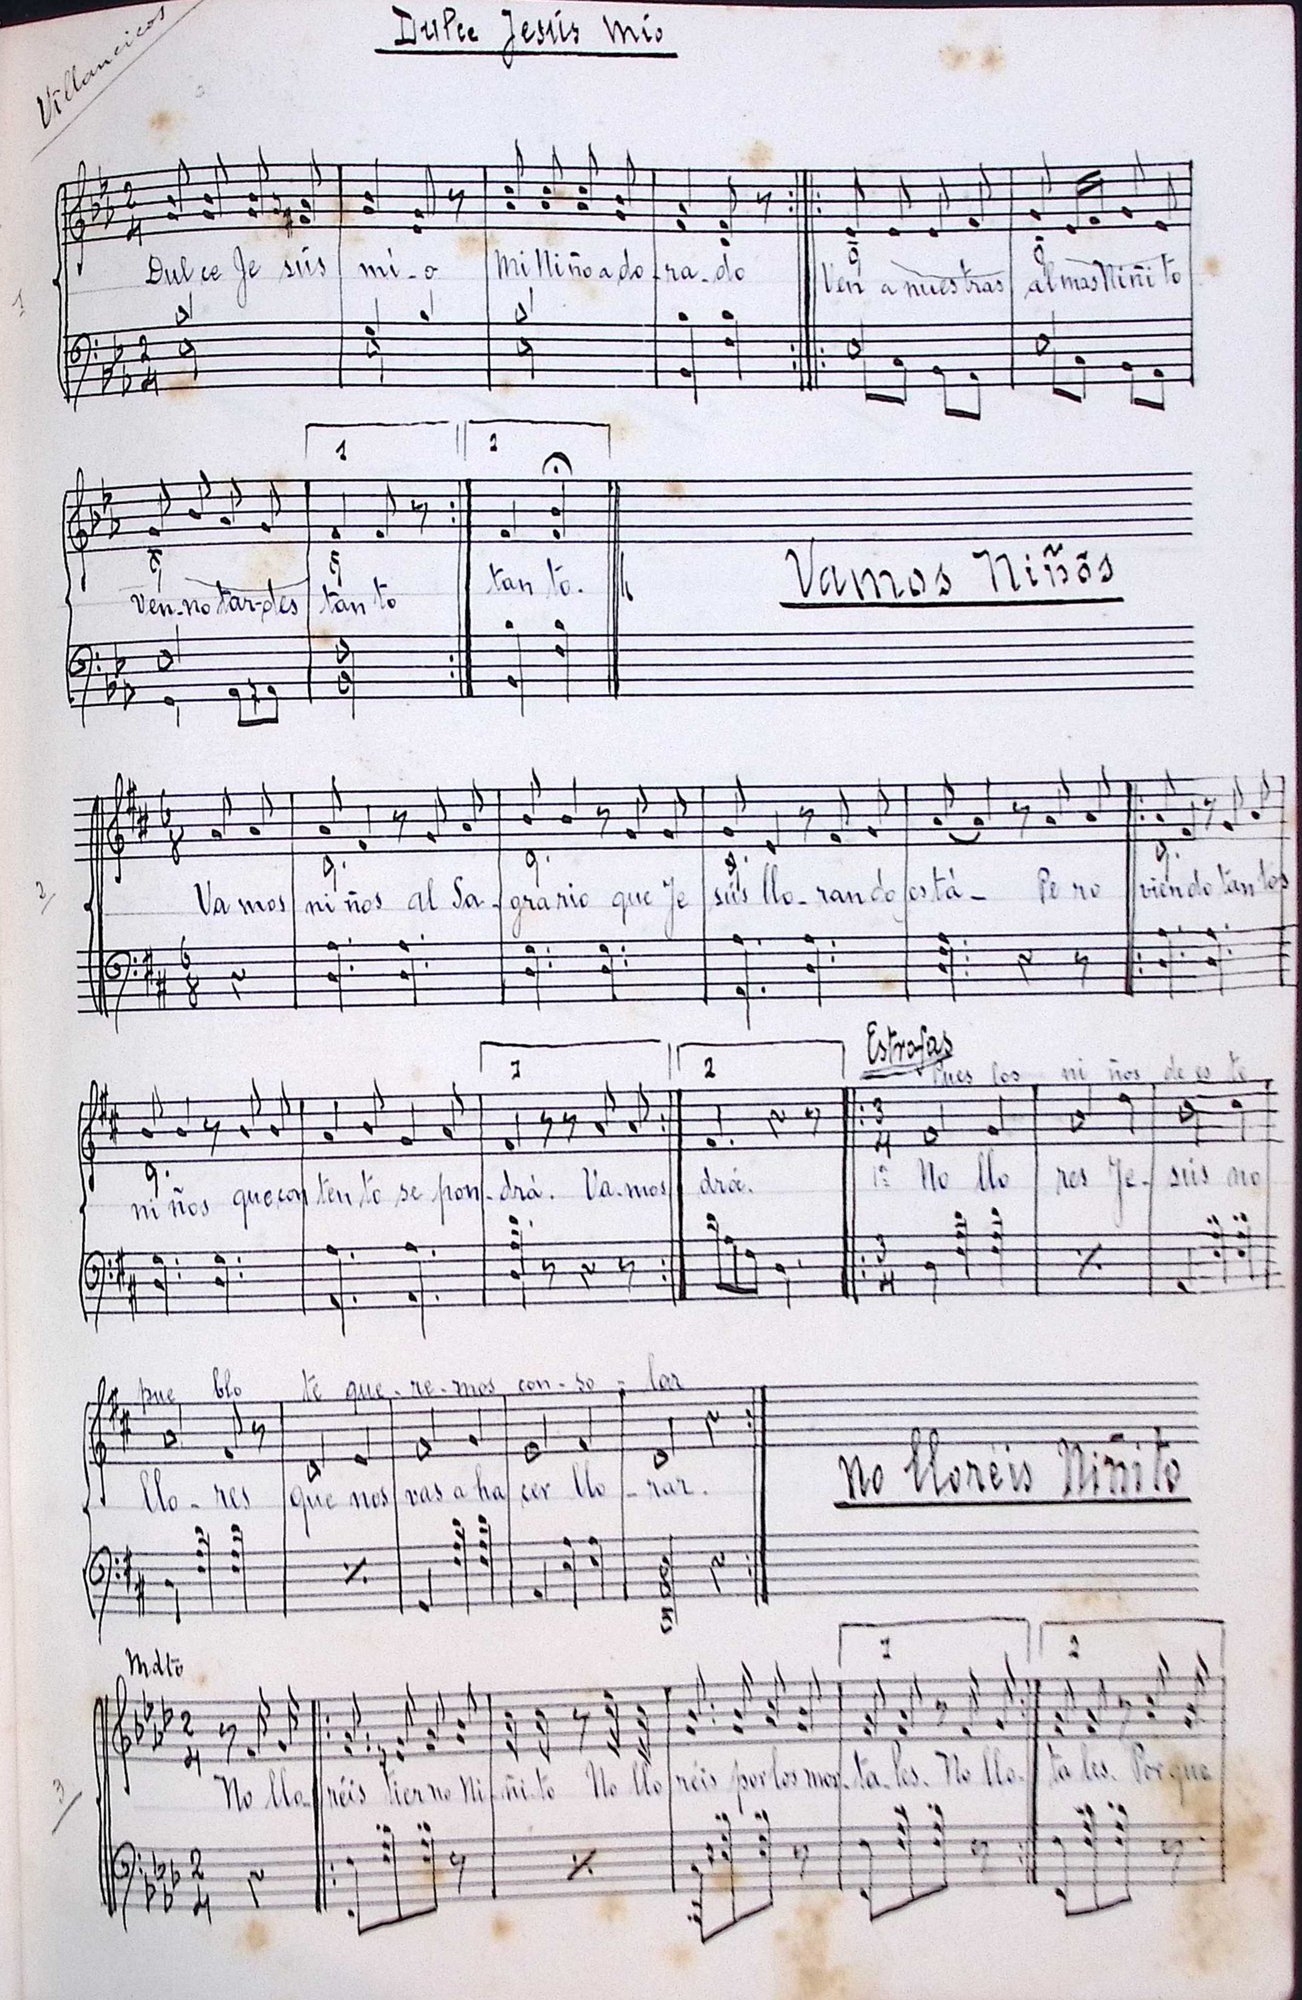 Villancicos
Dulce Jesús Mío
2 4
1 Dul ce Je sús mí - o Mi Niño a do - ra - do Ven a nues tras al mas Niñi to
2 4
1 2
ven - no tar - des tan to tan to.
Vamos Niños
6 8
2 Va mos ni ños al Sa - grario que Je sús llo - ran do es tá - Pe ro viendo tan tos
6 8
1 2 Estrofas
Pues los ni ños de es te
3 4
ni ños que con ten to se pon - drá. Va - mos drá. 1ª No llo res Je - sús no
3 4
pue blo te que - re - mos con - so - lar
llo - res que nos vas a ha cer llo - rar.
No lloréis Niñito
Mdto 1 2
2 4
3 No llo - réis tier no Ni - ñi - to No llo réis por los mor - ta - les. No llo - ta les. Por que
2 4